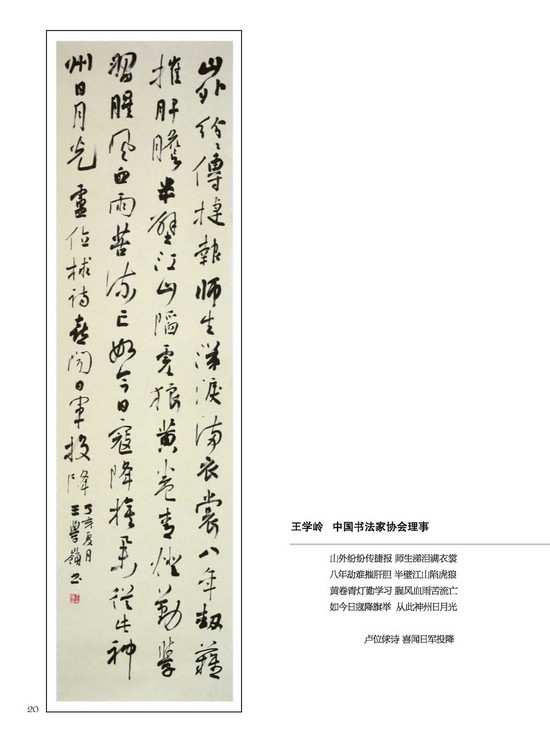 山外纷纷传捷報师生涕淚满衣裳八年劫難
摧肝膽半壁江山陷虎狼黄卷青燈勤學
習腥风血雨苦流亡如今日寇降旗舉従此神
州日月光 盧位捄诗喜闻日軍投降
丁亥夏月
王學嶺书
王学岭 中国书法家协会理事
山外纷纷传捷报 师生涕泪满衣裳
八年劫难摧肝胆 半壁江山陷虎狼
黄卷青灯勤学习 腥风血雨苦流亡
如今日寇降旗举 从此神州日月光
卢位俅诗 喜闻日军投降
20